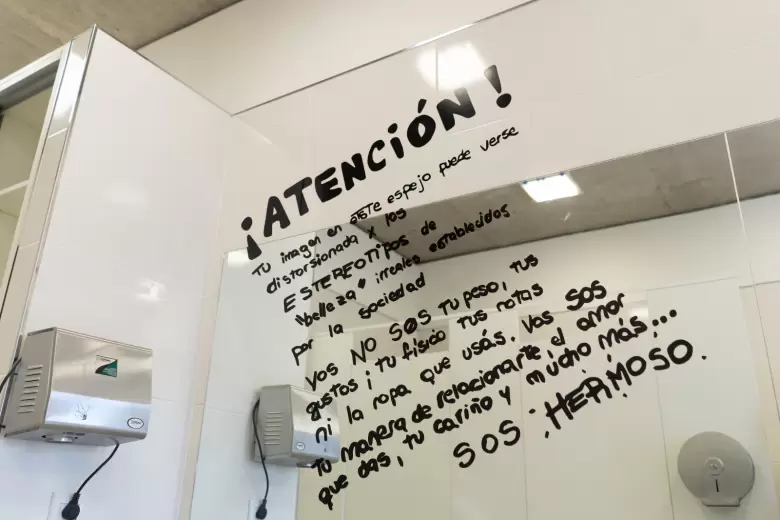 ¡ATENCIÓN!
TU imagen en este espejo puede verse
distorsionada x los
ESTEREOTIPOS de
"belleza" irreales establecidos
por la sociedad
Vos NO SOS TU peso, tus
gustos, tu físico tus notas
ni la ropa que usás. Vos sos
Tu manera de relacionarte el amor
que das, tu cariño y mucho más...
SOS HERMOSO.